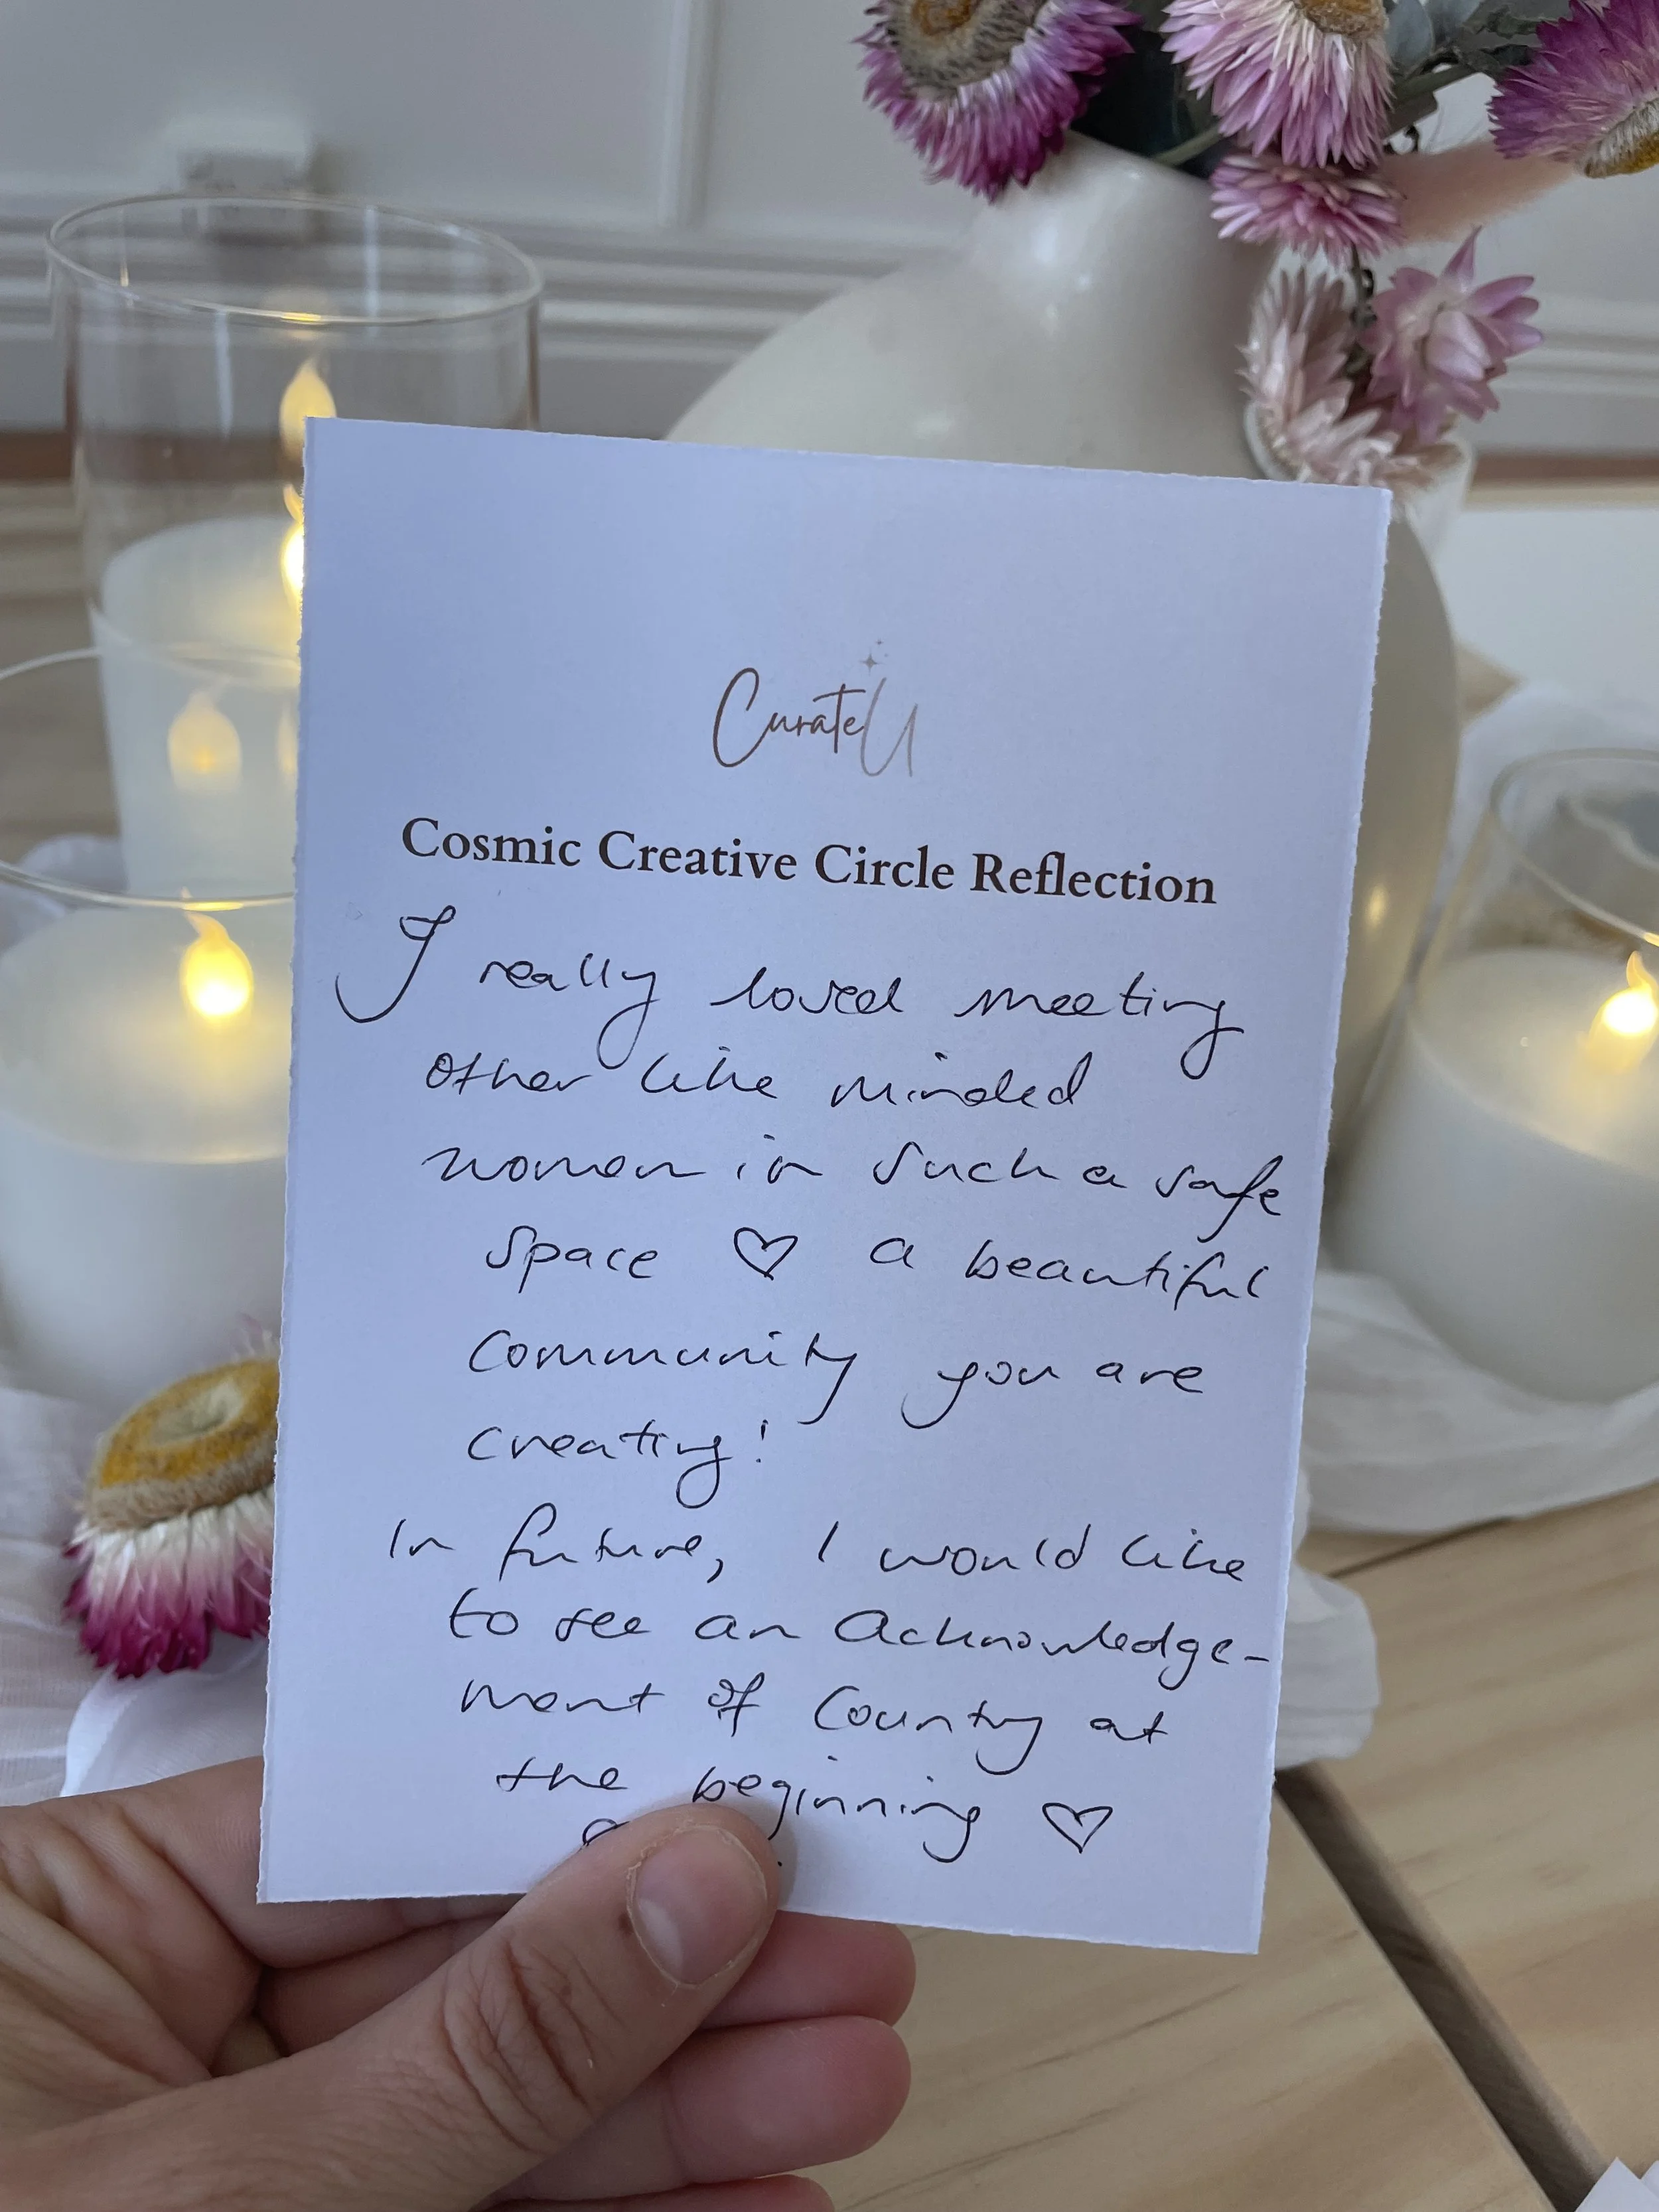 CurateU
Cosmic Creative Circle Reflection
I really loved meeting
other like minded
women in such a safe
space ♡ a beautiful
community you are
creating!
In future, I would like
to see an Acknowledge-
ment of Country at
the beginning ♡